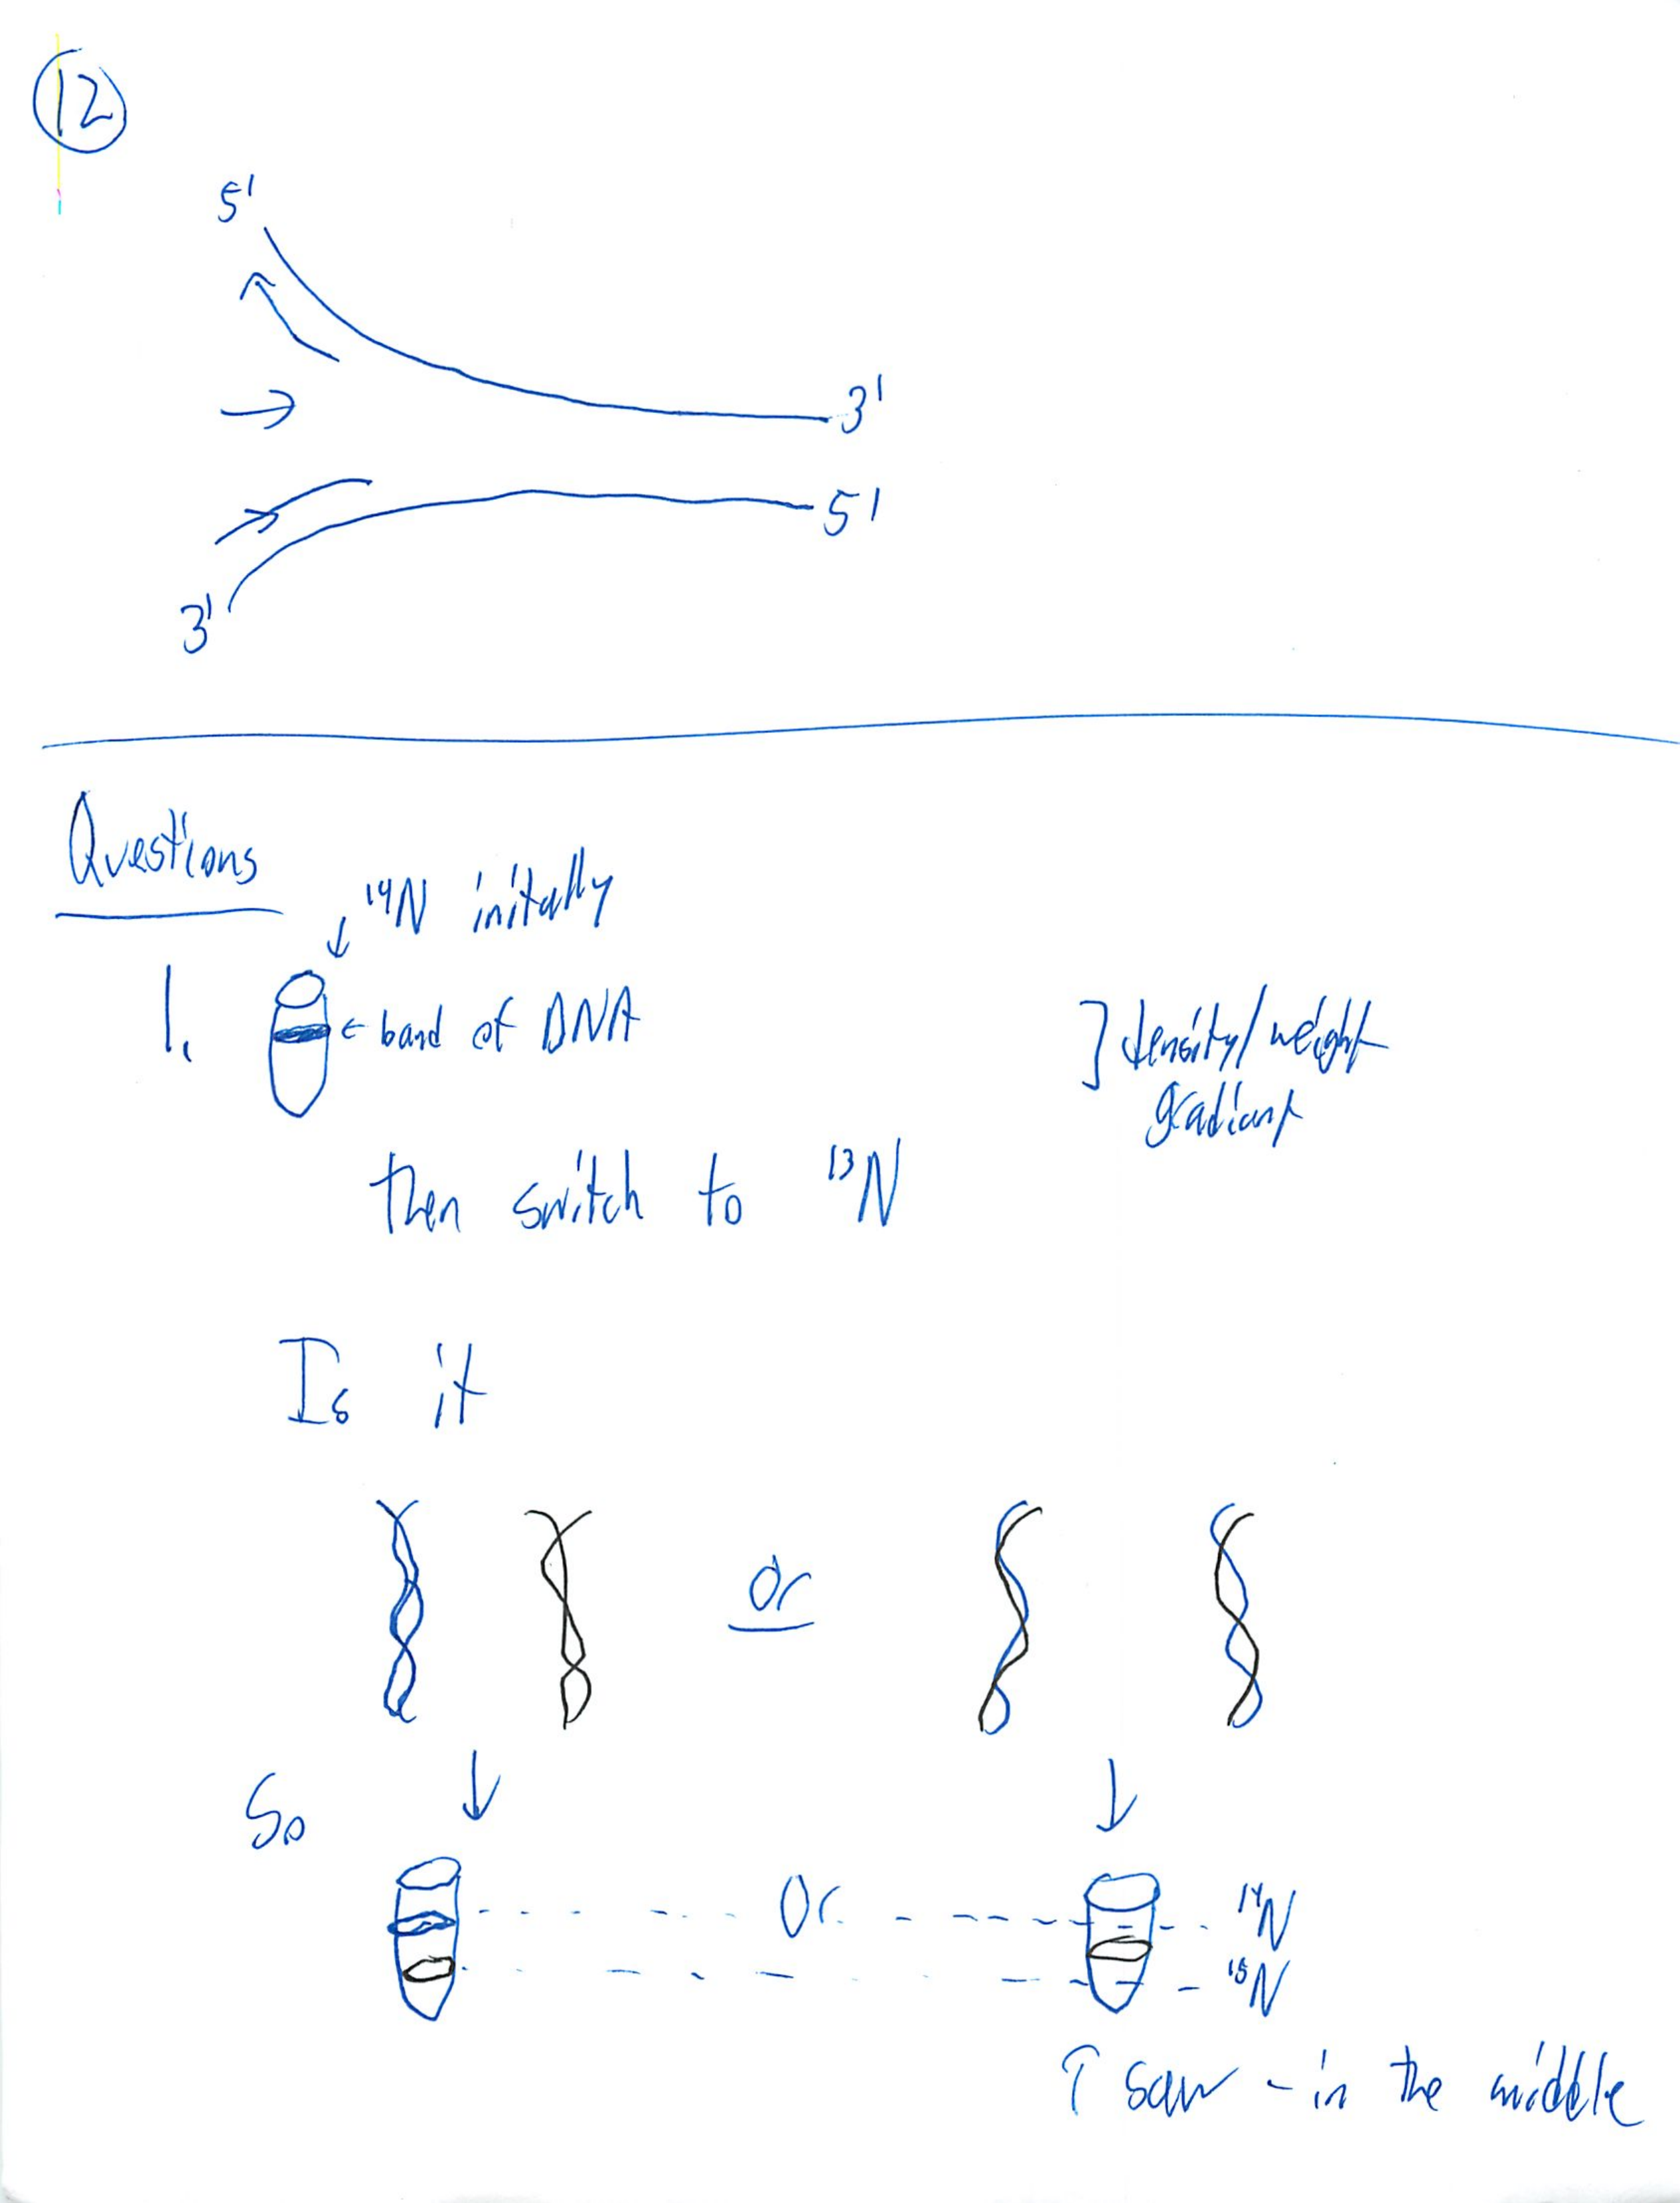 12
5'
3'
5'
3'
Questions
¹⁴N initally
1.
← band of DNA
] density/weight
gradiant
then switch to ¹³N
Is it
Or
So
Or
¹⁴N
¹⁵N
↑ saw - in the middle